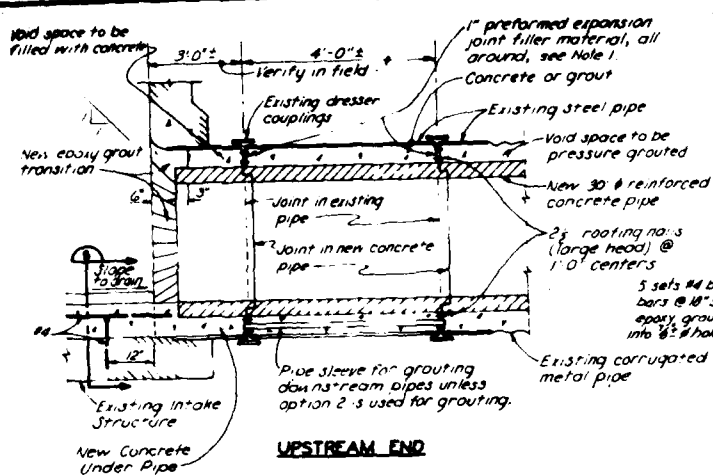 Void space to be
filled with concrete
3'-0" ±
4'-0" ±
Verify in field
1" preformed expansion
joint filler material, all
around, see Note 1.
Concrete or grout
Existing dresser
couplings
Existing steel pipe
New epoxy grout
transition
Void space to be
pressure grouted
6"
3"
New 30" ϕ reinforced
concrete pipe
Joint in existing
pipe
Joint in new concrete
pipe
roofing nails
(large head) @
1'-0" centers
Slope
to drain
5 sets #4 b
bars @ 18" s
epoxy grou
into
#4
12"
Pipe sleeve for grouting
downstream pipes unless
option 2 is used for grouting.
Existing corrugated
metal pipe
Existing Intake
Structure
New Concrete
Under Pipe
UPSTREAM END